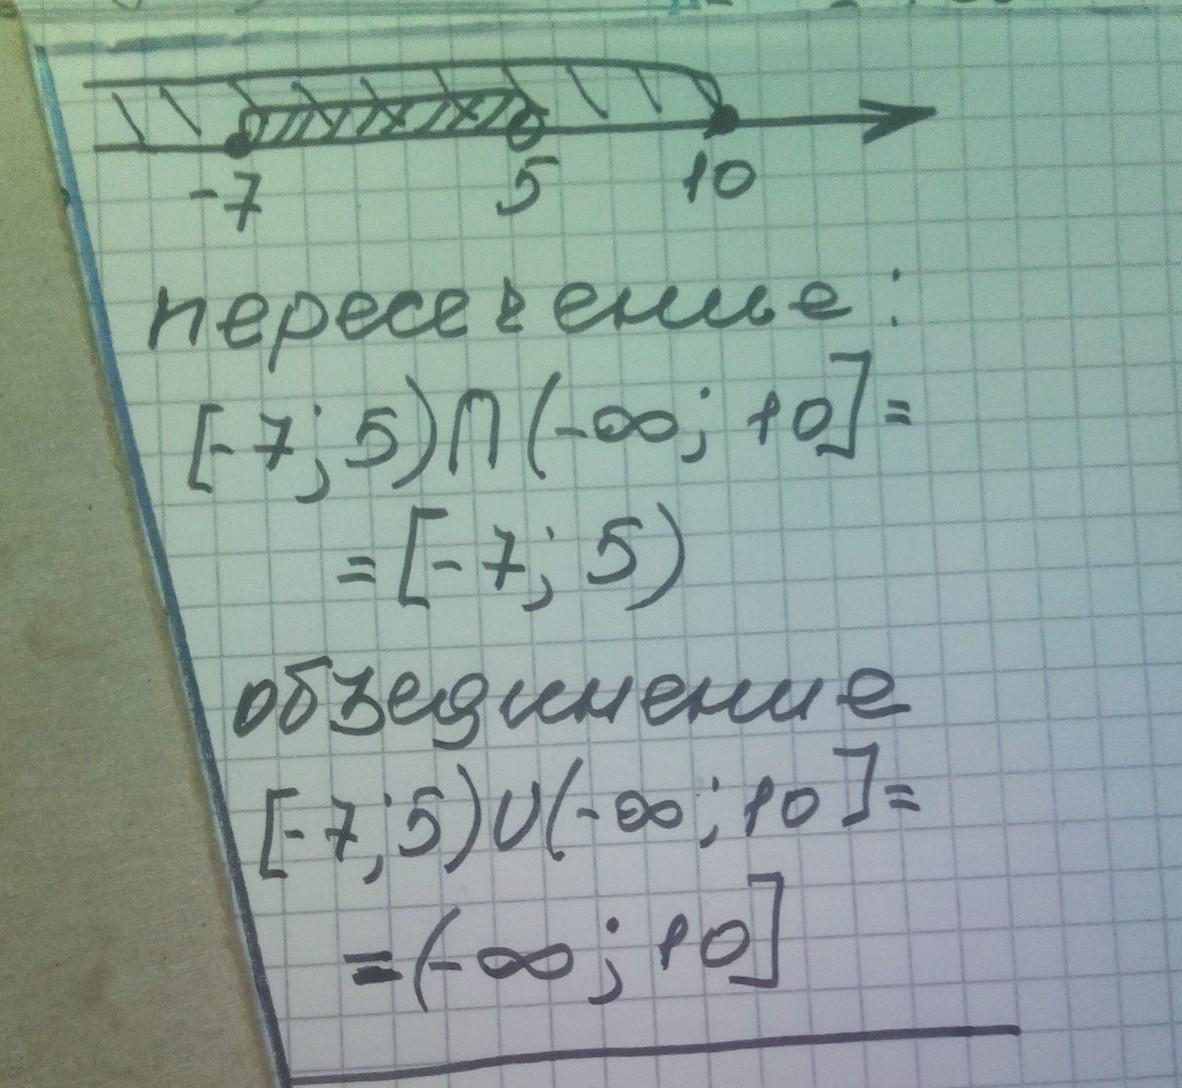 -7 5 10
пересечение:
[-7; 5)∩(-∞; 10]=
=[-7; 5)
объединение
[-7; 5)∪(-∞; 10]=
=(-∞; 10]